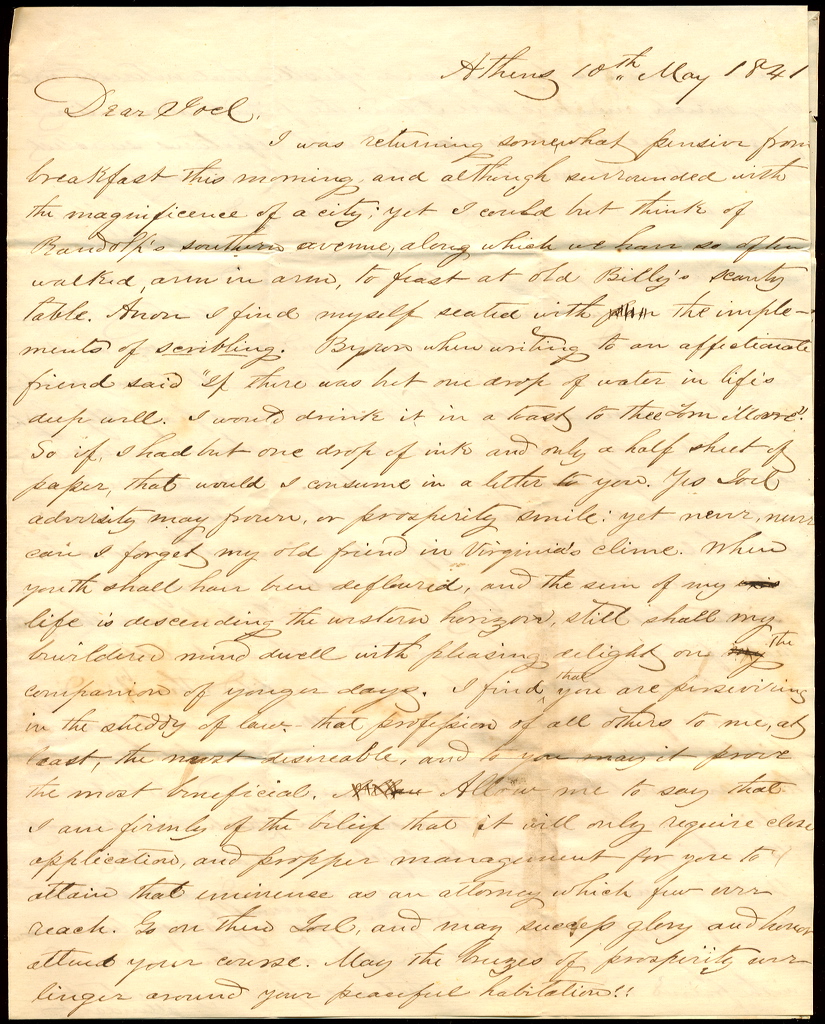 Athens 10th May 1841
Dear Joel,
I was returning somewhat pensive from
breakfast this morning, and although surrounded with
the magnificence of a city; yet I could but think of
Randolk's southern avenue, along which we have so often
walked, arm in arm, to feast at old Billy's scanty
table. Anon I find myself seated with the imple-
ments of scribling. Byron when writing to an affectionate
friend said "If there was but one drop of water in life's
deep well. I would drink it in a toast to thee Tom Moore"!
So if, I had but one drop of ink and only a half sheet of
paper, that would I consume in a letter to you. Yes Joel
adversity may frown, or prosperity smile; yet never, never
can I forget my old friend in Virginia's clime. When
youth shall have been defloured, and the sun of my
life is descending the western horizon, still shall my
bewildered mind dwell with pleasing delight on the
companion of yonger days. I find that you are perseviring
in the studdy of law. that profession of all others to me, at
least, the most desireable, and to you may it prove
the most beneficial. Allow me to say that
I am firmly of the belief that it will only require close
application, and propper management for you to
attain that eminense as an attorney which few ever
reach. Go on then Joel, and may success glory and honor
attend your course. May the breezes of prosperity ever
linger around your peaceful habitation!!